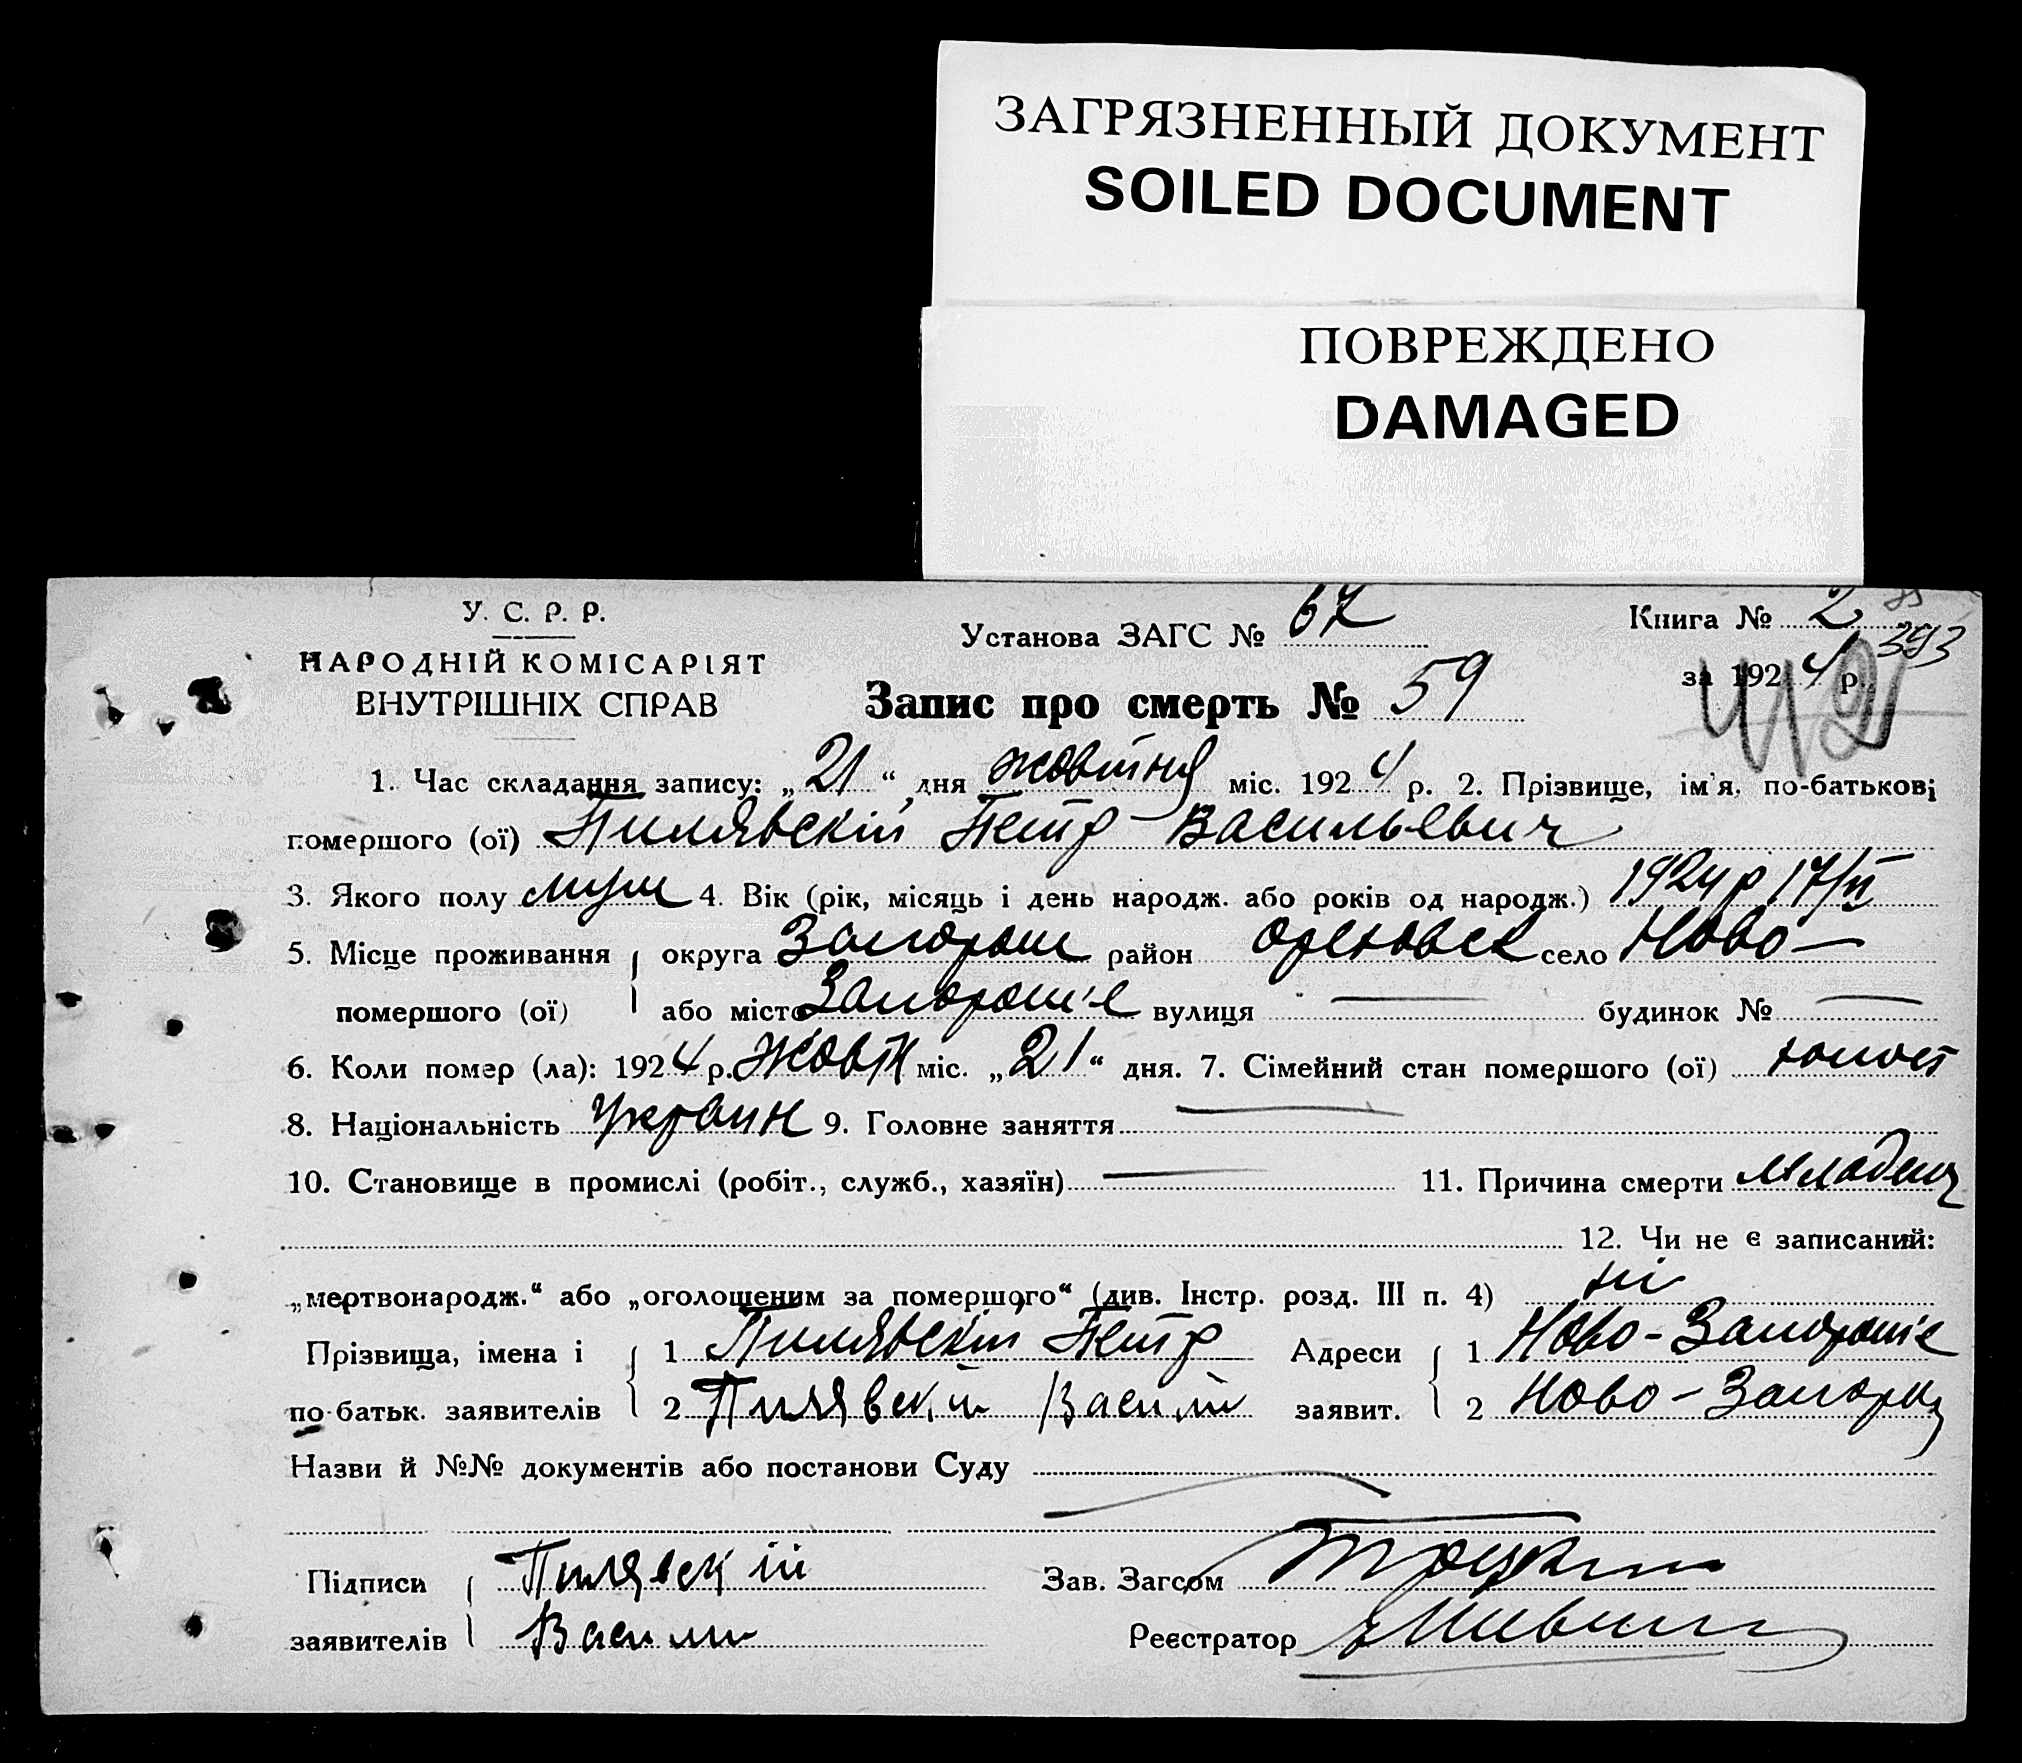 ЗАГРЯЗНЕННЫЙ ДОКУМЕНТ
SOILED DOCUMENT
ПОВРЕЖДЕНО
DAMAGED
У. С. Р. Р.
НАРОДНІЙ КОМІСАРІЯТ
ВНУТРІШНІХ СПРАВ
Установа ЗАГС № 67
Книга № 2
393
за 1924 р.
Запис про смерть № 59
1. Час складання запису: „21“ дня жовтня міс. 1924 р. 2. Прізвище, ім'я, по-батькові
помершого (ої) Пилявскій Петр Васильевич
3. Якого полу муж 4. Вік (рік, місяць і день народж. або років од народж.) 1924 р 17/II
5. Місце проживання округа Запорож район Ореховск село Ново-
помершого (ої) або місто Запорожіе вулиця — будинок № —
6. Коли помер (ла): 1924 р. Жовтн міс. „21“ дня. 7. Сімейний стан помершого (ої) холост
8. Національність Украин 9. Головне заняття —
10. Становище в промислі (робіт., служб., хазяїн) — 11. Причина смерти младенч
12. Чи не є записаний:
„мертвонародж.“ або „оголошеним за помершого“ (див. Інстр. розд. III п. 4) ні
Прізвища, імена і 1 Пилявскій Петр Адреси 1 Ново-Запорожіе
по батьк. заявителів 2 Пилявский Василий заявит. 2 Ново-Запорож
Назви й №№ документів або постанови Суду —
Підписи Пилявскій Зав. Загсом
заявителів Василий Реєстратор